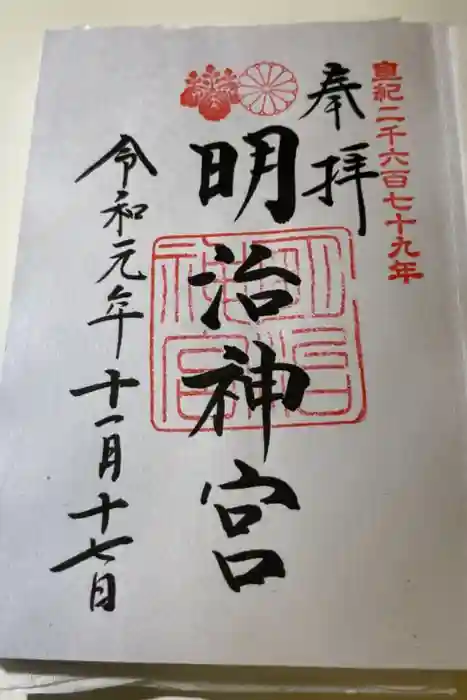 皇紀二千六百七十九年
奉拝
明治神宮
明治神宮
令和元年十一月十七日